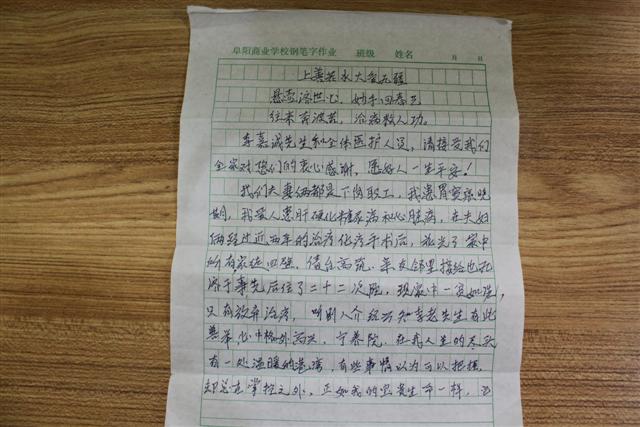 阜阳商业学校钢笔字作业 班级 姓名 月 日
上善若水大爱无疆
悬壶济世心，妙手回春艺
往来有波荒，治病救人功。
李嘉诚先生和全体医护人员，请接受我们
全家对您们的衷心感谢，愿好人一生平安！
我们夫妻俩都是下岗职工，我患胃窦癌晚
期，我爱人患肝硬化糖尿病和心脏病，在夫妇
俩经过近两年的治疗化疗手术后，花光了家中
所有家徒四壁，债台高筑，亲友邻里接给也死
济于事先后住了二十二次院，现家中一贫如洗，
只有放弃治疗，听别人介绍方知李老先生有此
善举心中格外高兴，宁养院，在我人生的冬天
有一处温暖的港湾，有些事情以为可以把握，
却总在掌控之外，正如我的宝贵生命一样，